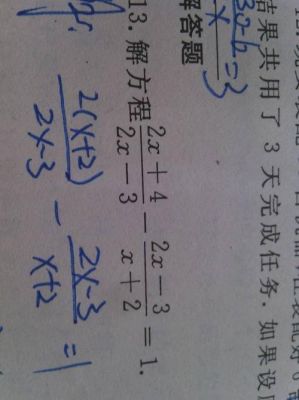 结果共用了 3 天完成任务. 如果设
3a-b=3
x
解答题
13. 解方程 \frac{2x+4}{2x-3} - \frac{2x-3}{x+2} = 1.
\frac{2(x+2)}{2x-3} - \frac{2x-3}{x+2} = 1